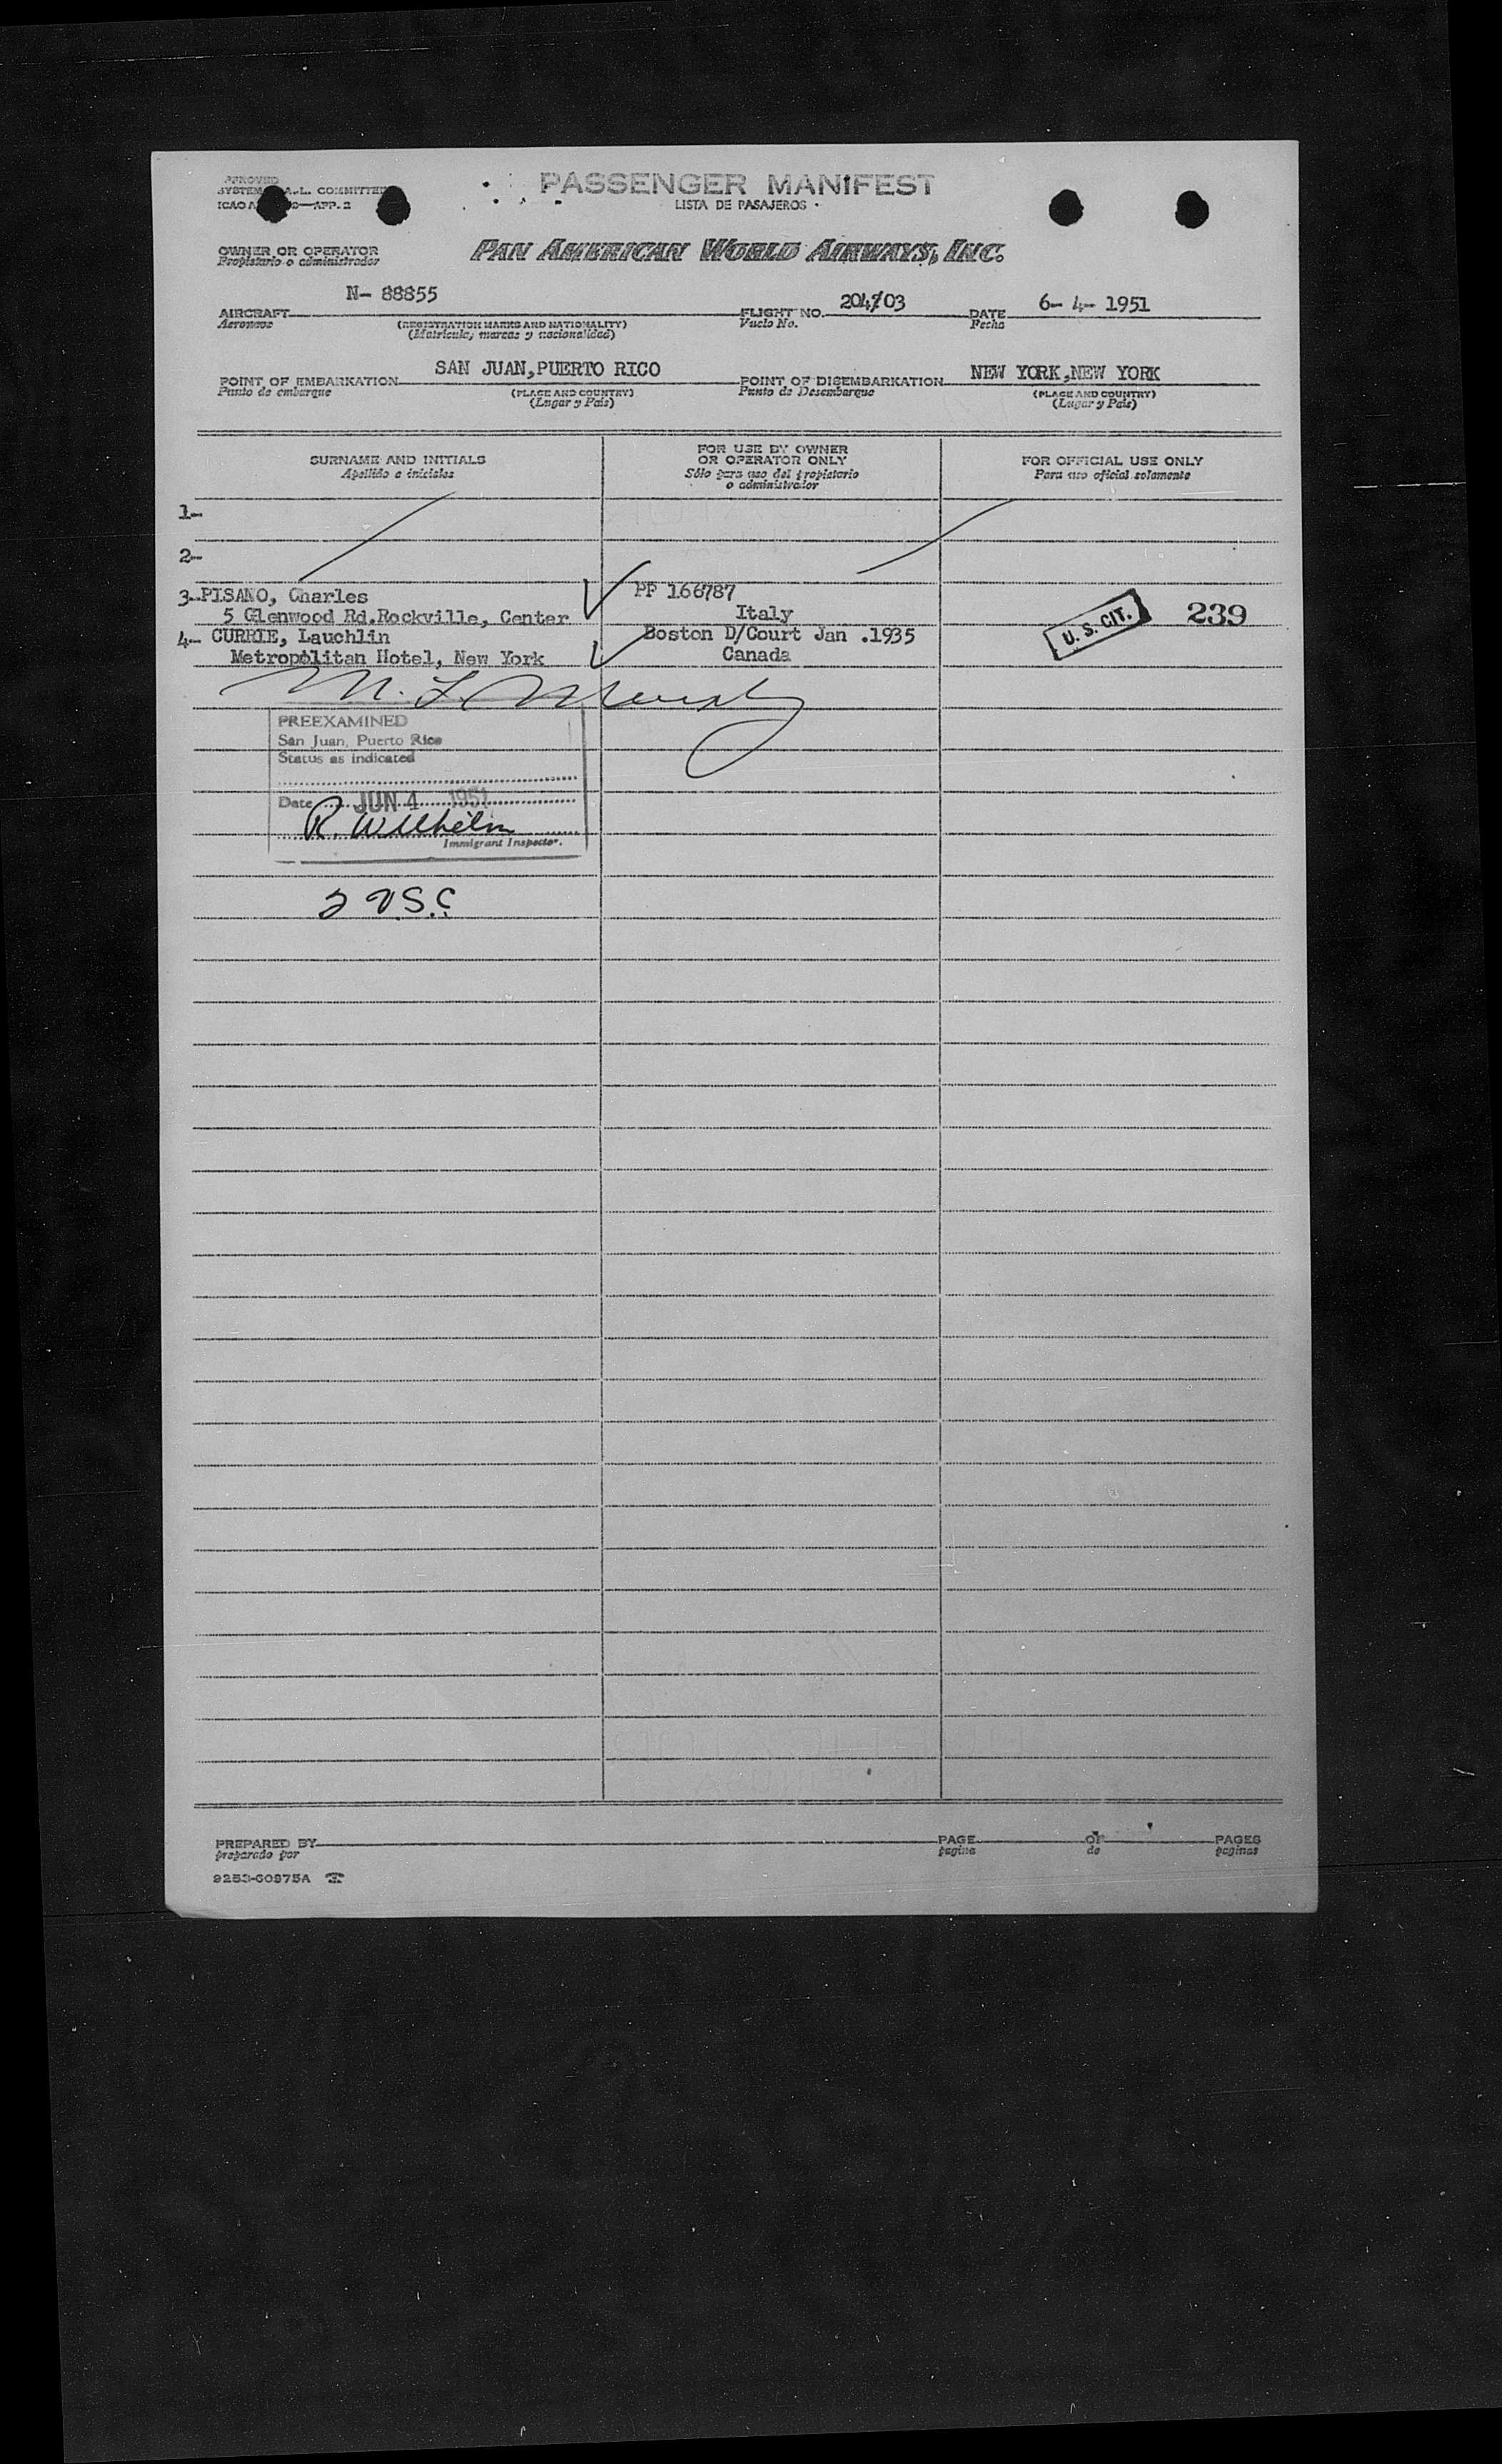 APPROVED
SYSTEM A.L. COMMITTEE
ICAO A 9—APP. 2
PASSENGER MANIFEST
LISTA DE PASAJEROS
OWNER OR OPERATOR
Propietario o administrador
PAN AMERICAN WORLD AIRWAYS, INC.
AIRCRAFT N- 88855
Aeronave
(REGISTRATION MARKS AND NATIONALITY)
(Matrícula, marcas y nacionalidad)
FLIGHT NO. 204/03
Vuelo No.
DATE 6- 4- 1951
Fecha
POINT OF EMBARKATION SAN JUAN,PUERTO RICO
Punto de embarque
(PLACE AND COUNTRY)
(Lugar y País)
POINT OF DISEMBARKATION NEW YORK,NEW YORK
Punto de Desembarque
(PLACE AND COUNTRY)
(Lugar y País)
SURNAME AND INITIALS
Apellido e iniciales
FOR USE BY OWNER
OR OPERATOR ONLY
Sólo para uso del propietario
o administrador
FOR OFFICIAL USE ONLY
Para uso oficial solamente
1-
2-
3-PISANO, Charles PP 166787
5 Glenwood Rd.Rockville, Center Italy U. S. CIT. 239
4- CURRIE, Lauchlin Boston D/Court Jan .1935
Metropolitan Hotel, New York Canada
M. L.
PREEXAMINED
San Juan, Puerto Rico
Status as indicated
Date JUN 4 1951
R. Wilhelm
Immigrant Inspector.
2 U.S.C.
PREPARED BY
preparado por
PAGE OF PAGES
pagina de paginas
9253-60975A